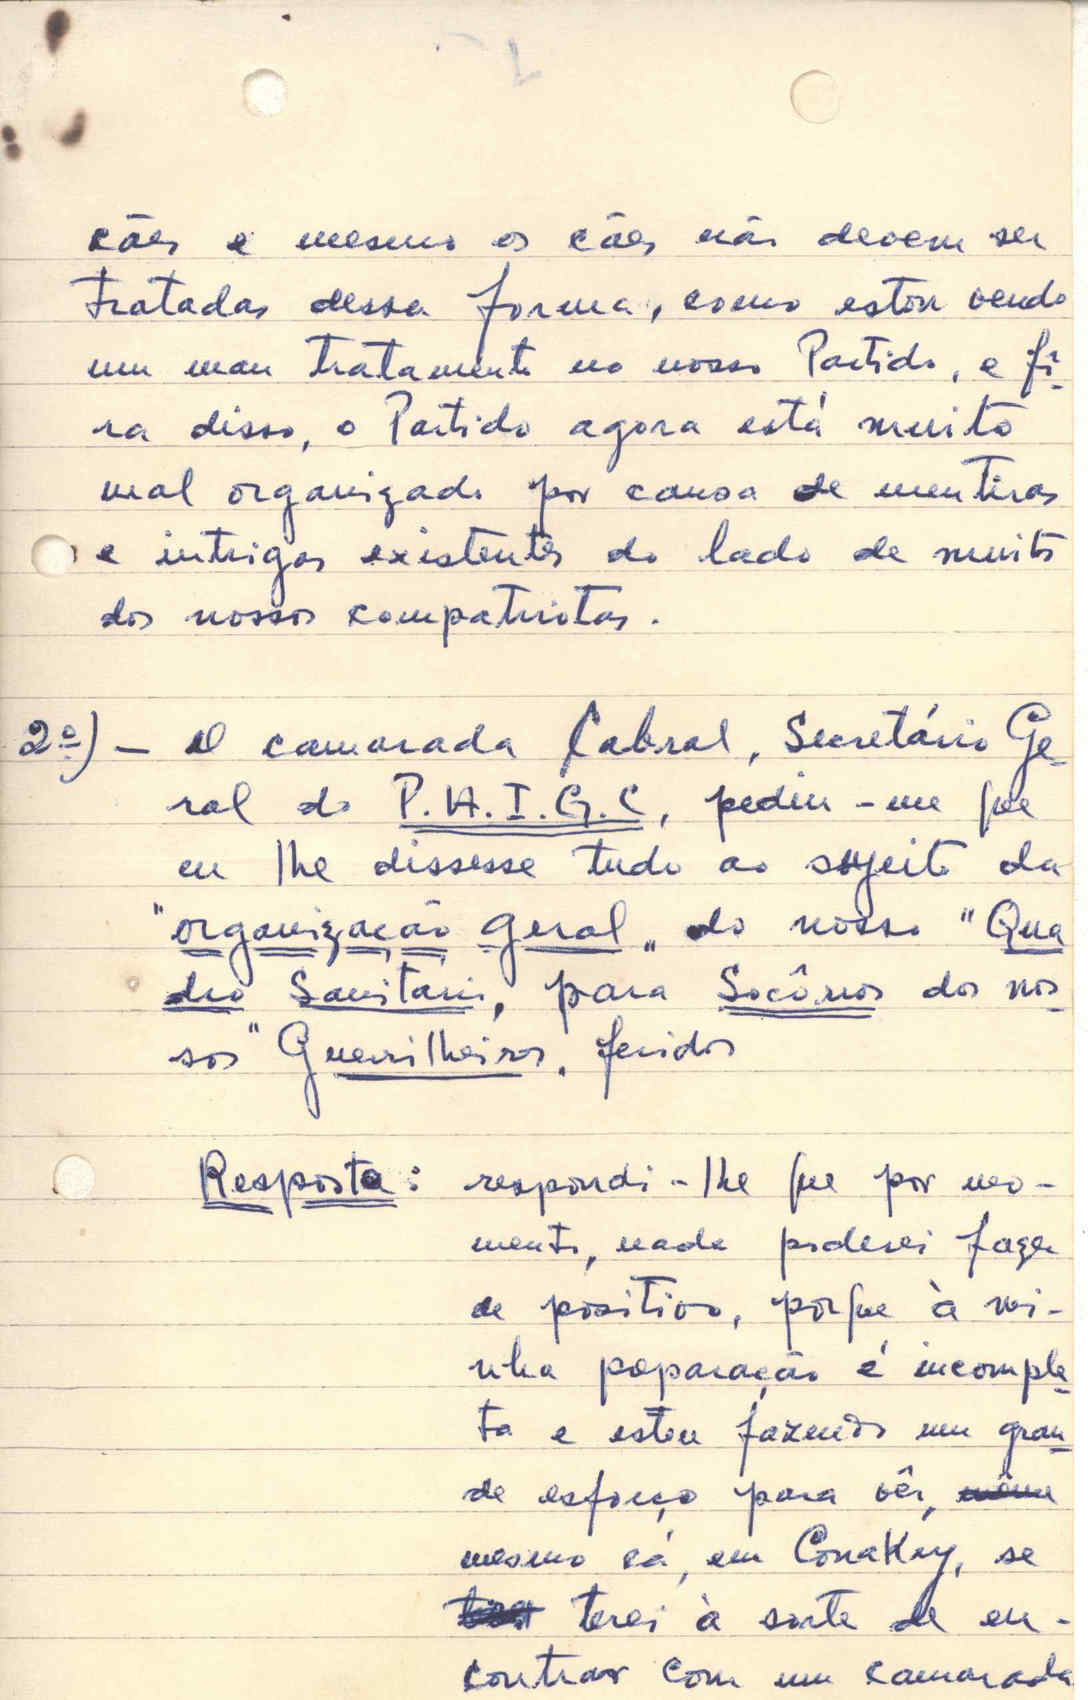 cães e mesmo os cães não devem ser
tratadas dessa forma, como estou vendo
um mau tratamento no nosso Partido, e fi-
ra disso, o Partido agora está muito
mal organizado por causa de mentiras
e intrigas existentes do lado de muitos
dos nossos compatriotas.
2º) - O camarada Cabral, Secretário Ge-
ral do P.A.I.G.C, pediu-me que
eu lhe dissesse tudo ao sujeito da
"organização geral" do nosso "Qua
dro Sanitário, para Socôrros dos nos-
sos "Guerrilheiros" feridos
Resposta: respondi-lhe que por mo-
mento, nada poderei fazer
de positivo, porque à mi-
nha preparação é incomple-
ta e estou fazendo um gran-
de esforço para vêr,
mesmo cá, em Conakry, se
terei à sorte de en-
contrar com um camarada